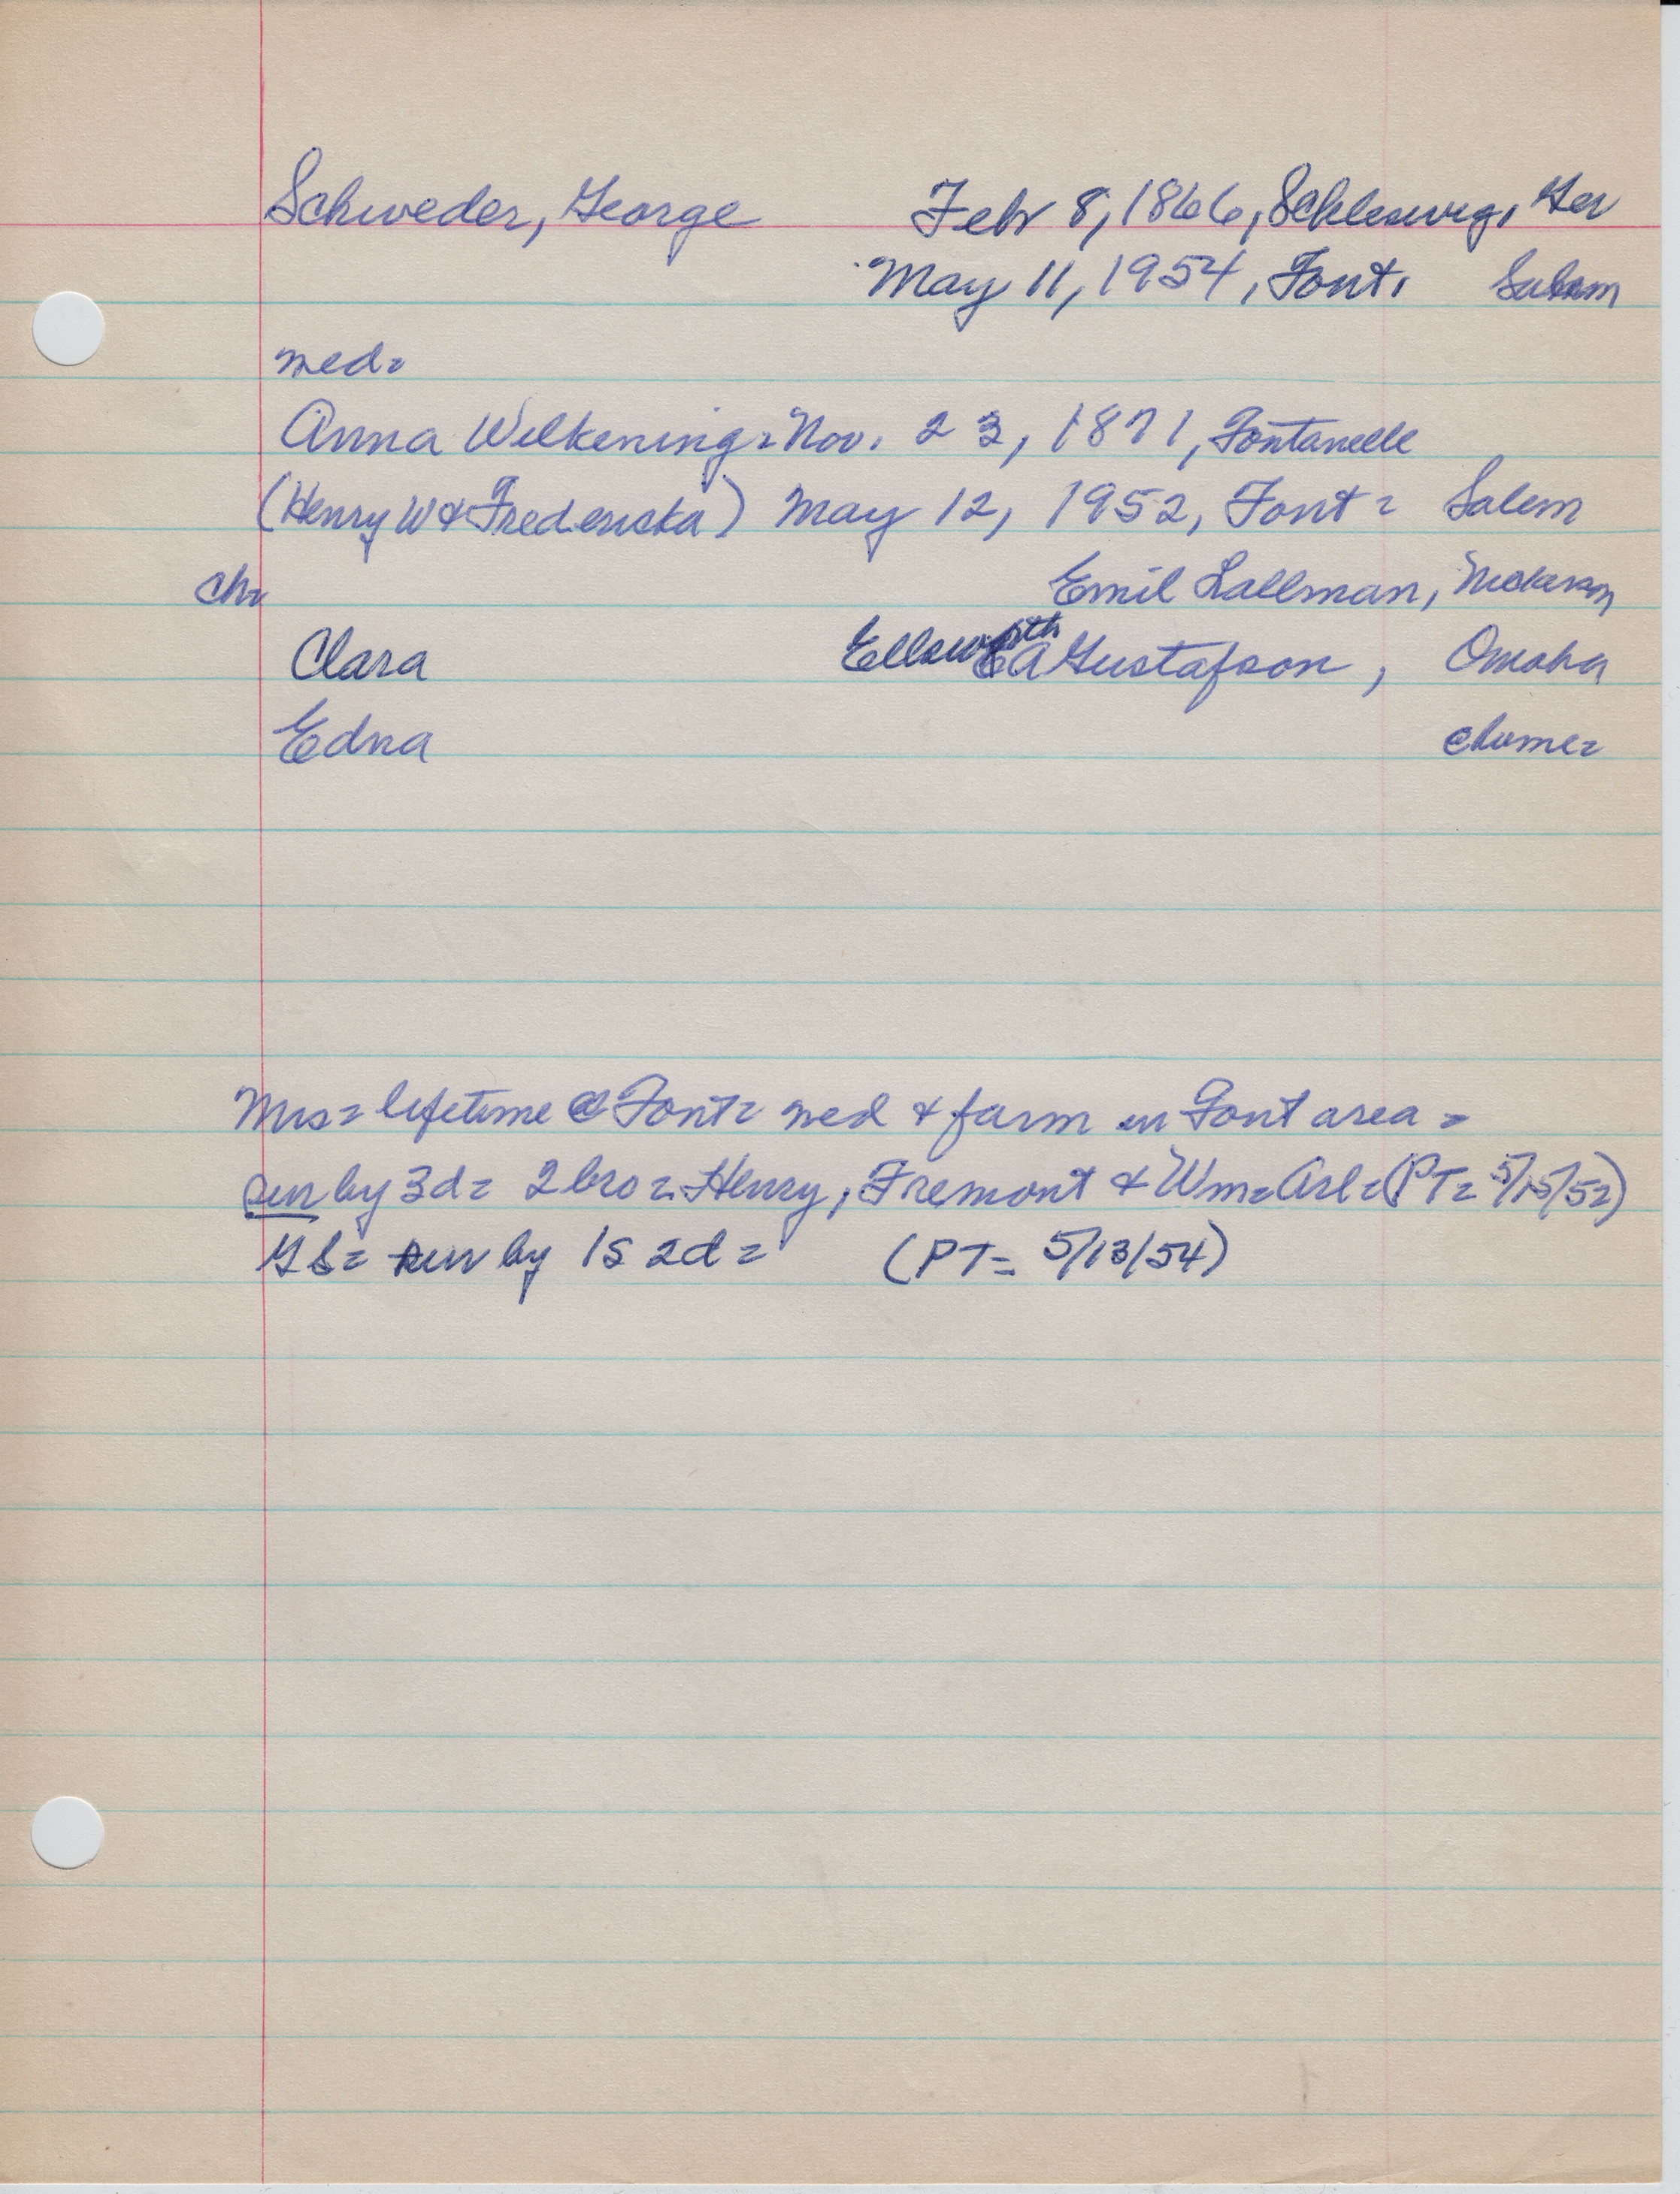 Schweder, George Febr 8, 1866, Schleswig, Ger
May 11, 1954, Font, Salem
med=
Anna Wilkening = Nov. 23, 1871, Fontanelle
(Henry W & Frederiska) May 12, 1952, Font = Salem
ch= Emil Lallman, Nickerson
Clara Ellsworth EA Gustafson, Omaha
Edna @home=
Mrs = lifetime @ Font= med & farm in Font area =
sur by 3d= 2 bro = Henry, Fremont & Wm= Arl = (PT= 5/15/52)
GS= sur by 1S 2d = (PT= 5/13/54)